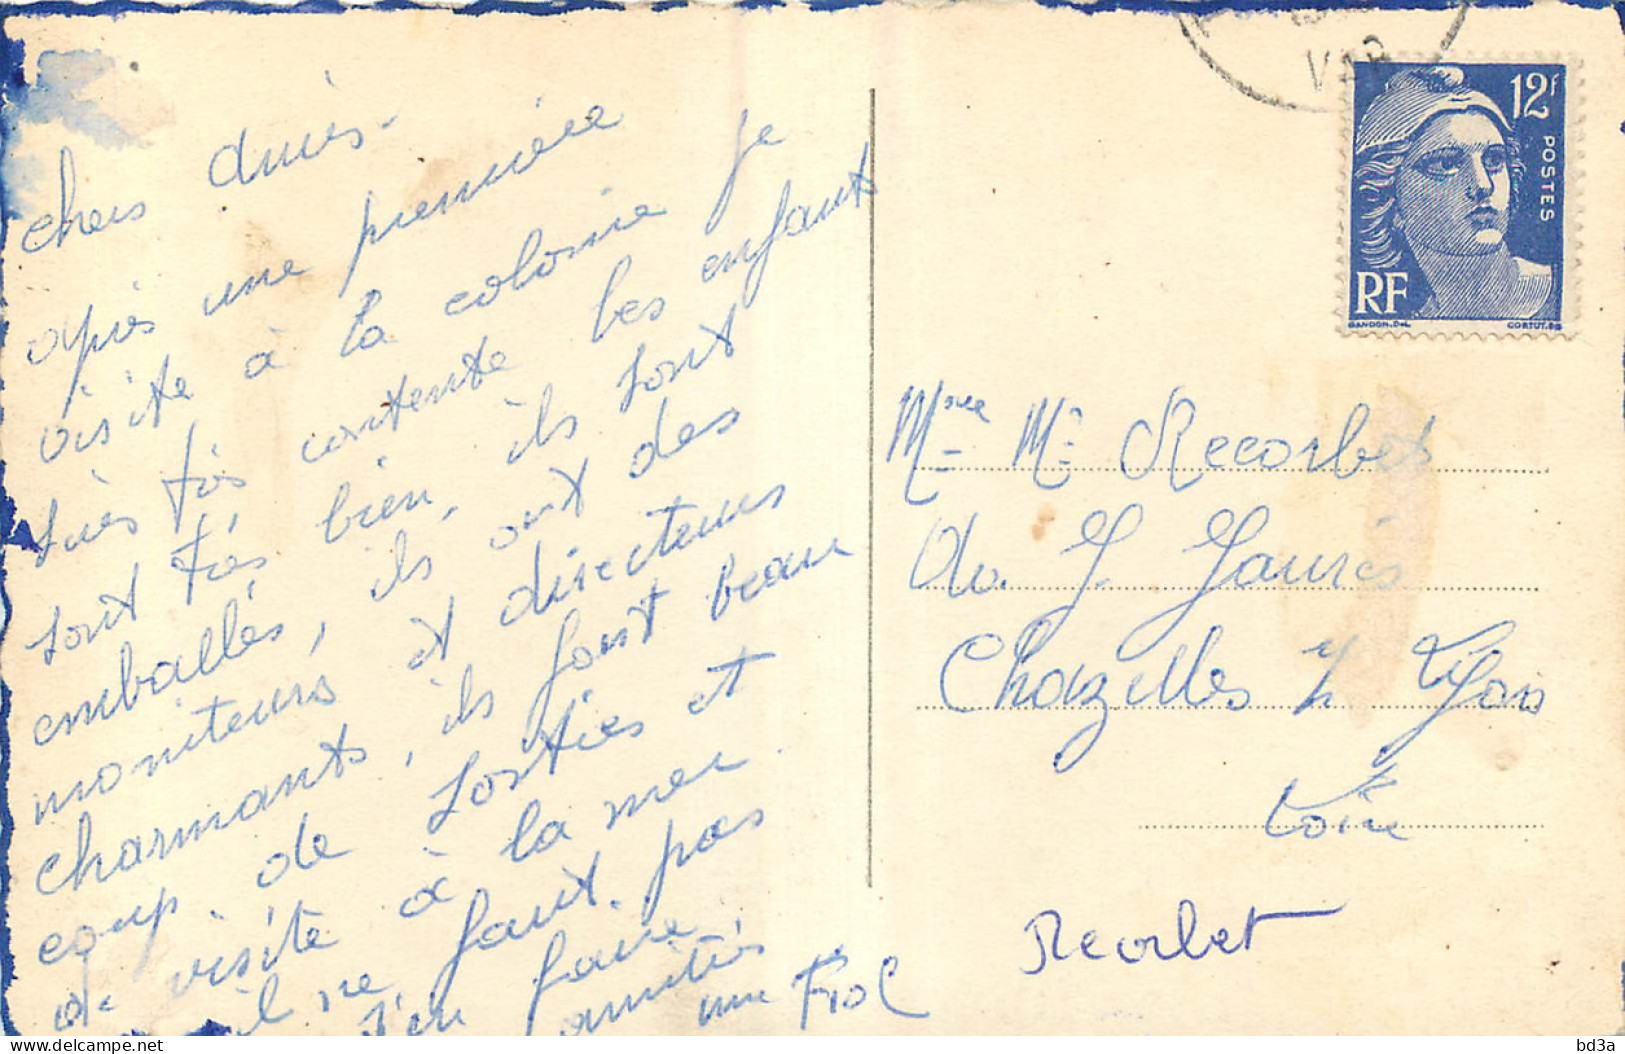 chers amis.
après une première
visite à la colonie je
suis très contente les enfants
sont très bien, ils sont
emballés, ils ont des
moniteurs et directeurs
charmants, ils font beau
coup de sorties et
de visite à la mer.
il ne faut pas
s'en faire
amitiés
VAR
12f
POSTES
RF
GANDON.DEL
CORTOT.SC
Mme Mr Recorbet
Av. J. Jaurès
Chazelles s/ Lyon
Loire
Recorbet
bd3a